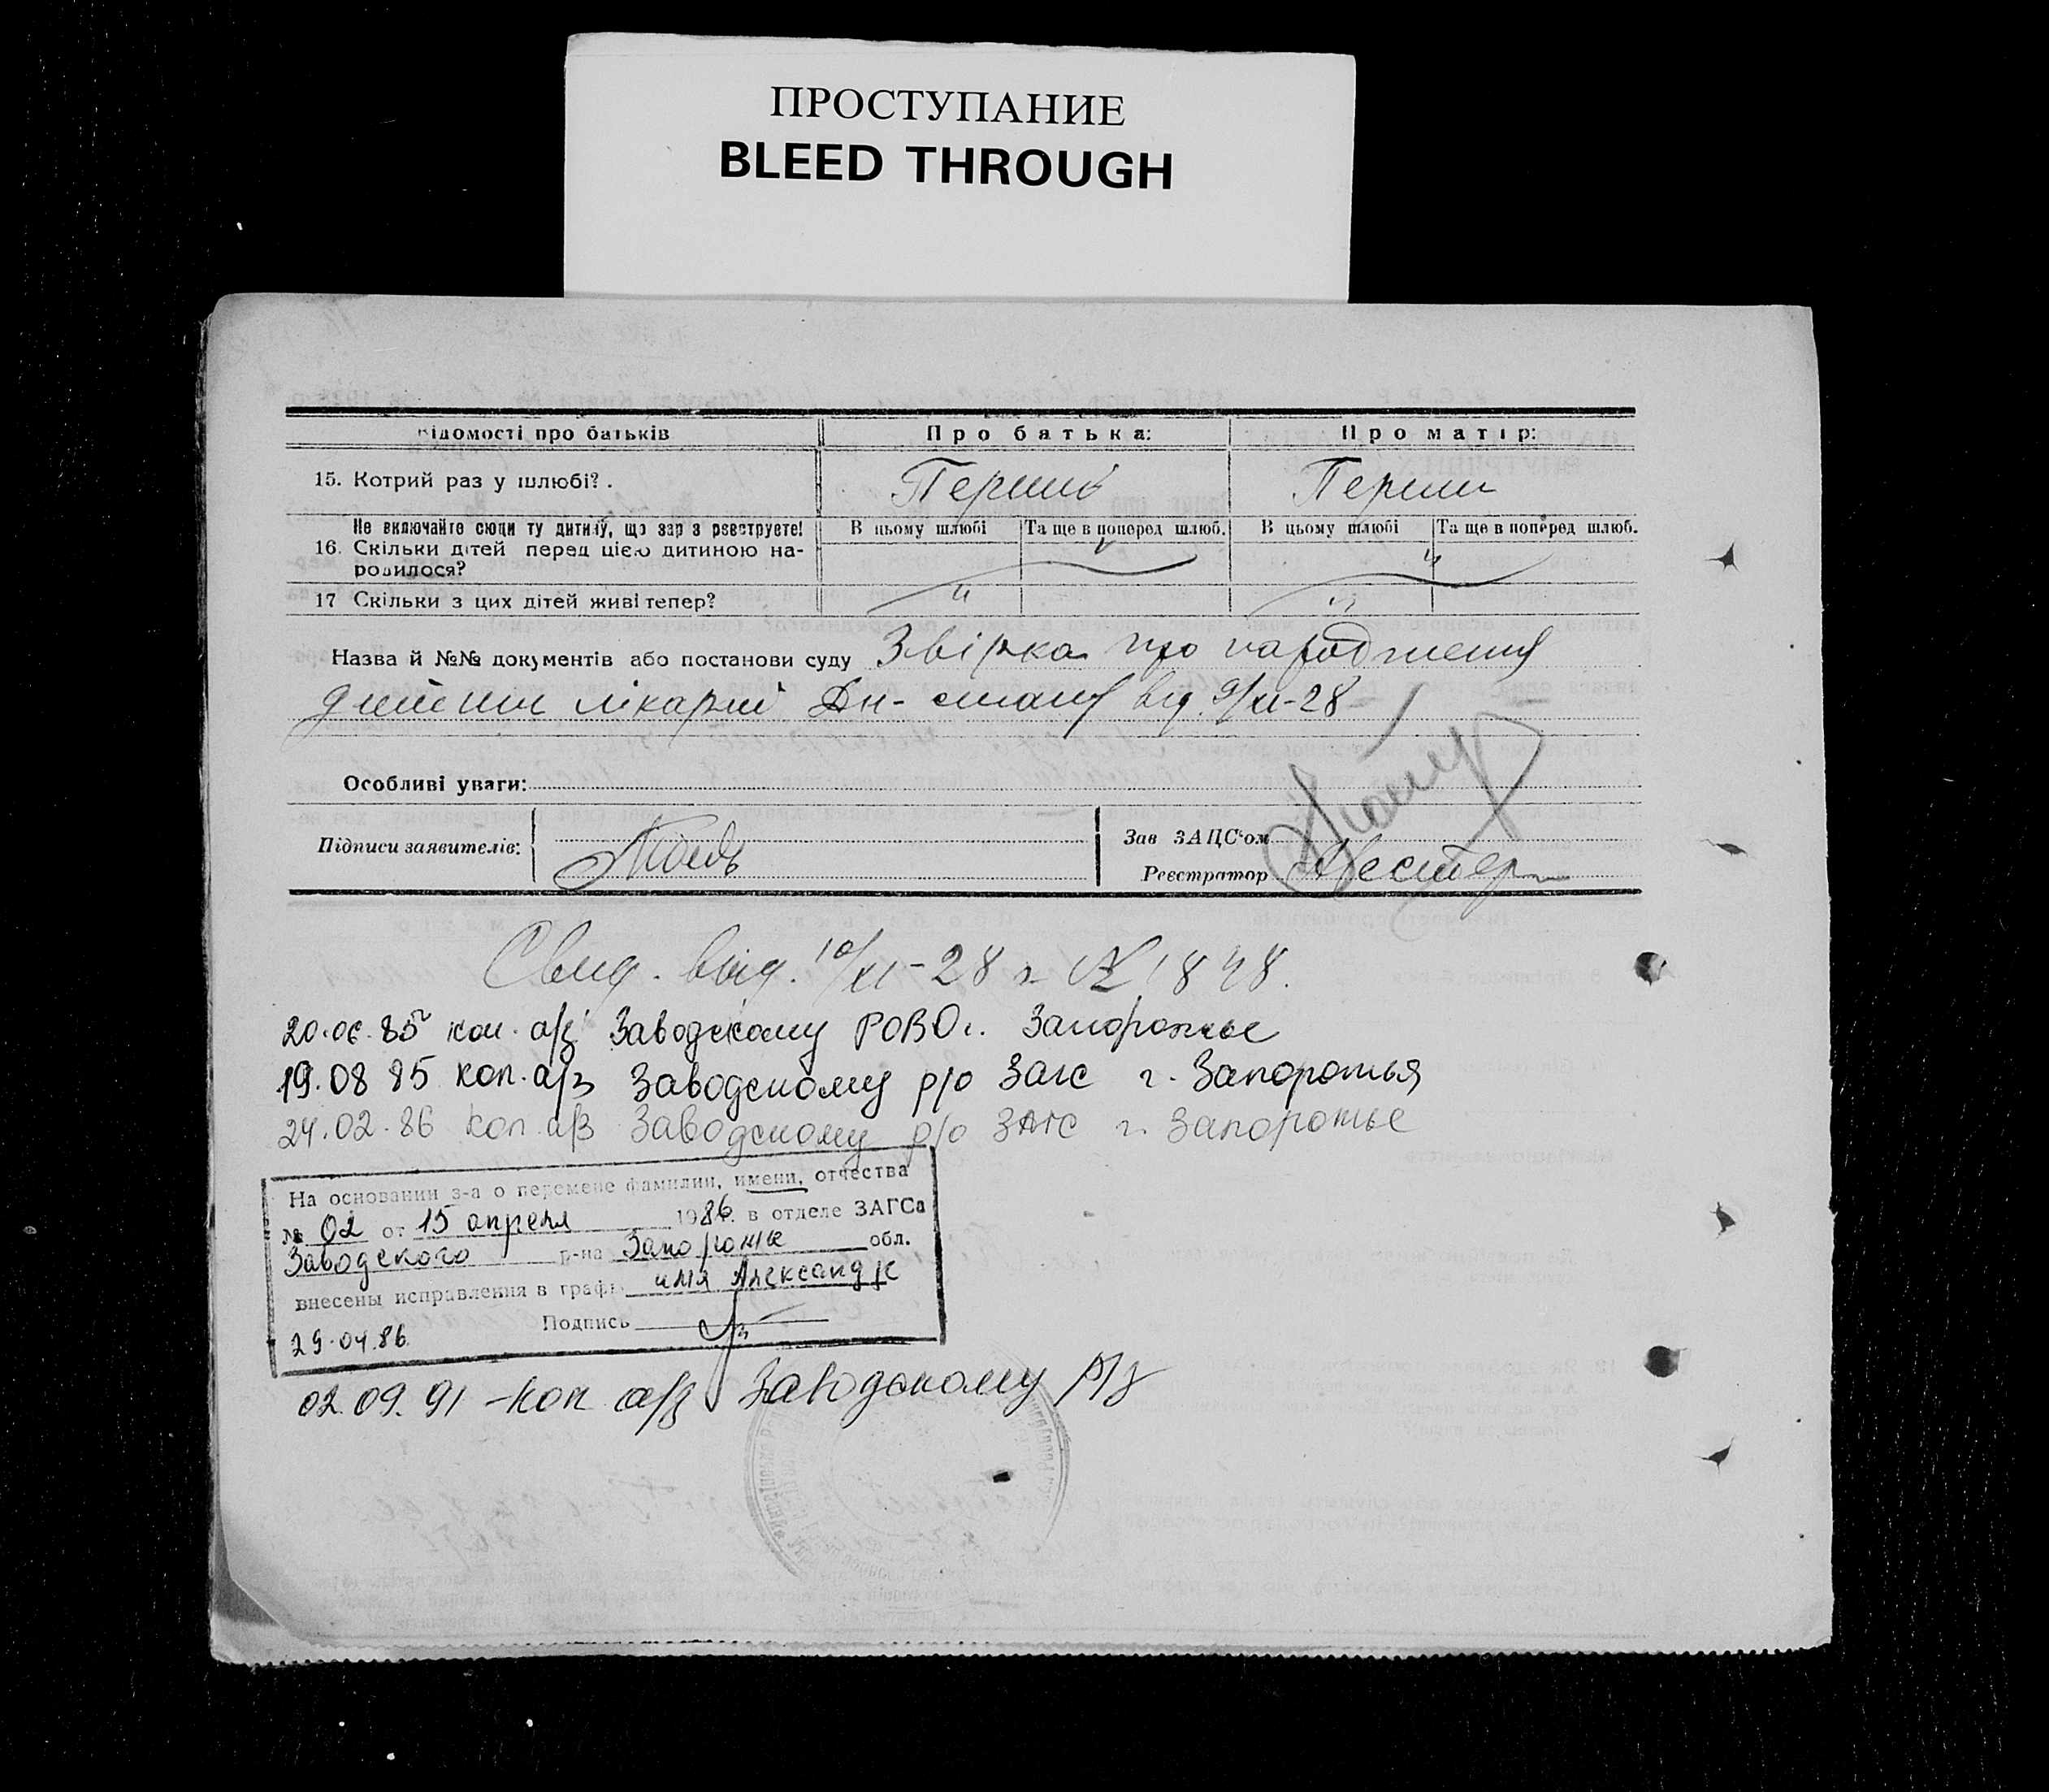 ПРОСТУПАНИЕ
BLEED THROUGH
Відомості про батьків
Про батька:
Про матір:
15. Котрий раз у шлюбі?.
Перший
Перший
Не включайте сюди ту дитину, що зар з реєструєте!
16. Скільки дітей перед цією дитиною на-
родилося?
В цьому шлюбі
Та ще в поперед шлюб.
В цьому шлюбі
Та ще в поперед шлюб.
17 Скільки з цих дітей живі тепер?
Назва й №№ документів або постанови суду
про народження
лікарні від 9/XI-28
Особливі уваги:
Підписи заявителів:
Зав ЗАЦС'ом
Реєстратор
Свид. вид. 10/XI-28 г. № 1848.
20.06.85 коп. а/з Заводскому РОВО г. Запорожье
19.08 85 коп. а/з Заводскому р/о Загс г. Запорожья
24.02.86 коп. а/з Заводскому р/о ЗАГС г. Запорожье
На основании з-а о перемене фамилии, имени, отчества
№ 02 от 15 апреля 1986 г. в отделе ЗАГСа
Заводского р-на Запорожье обл.
внесены исправления в граф. имя Александр
Подпись
29.04.86.
02.09.91 - коп а/з Заводскому